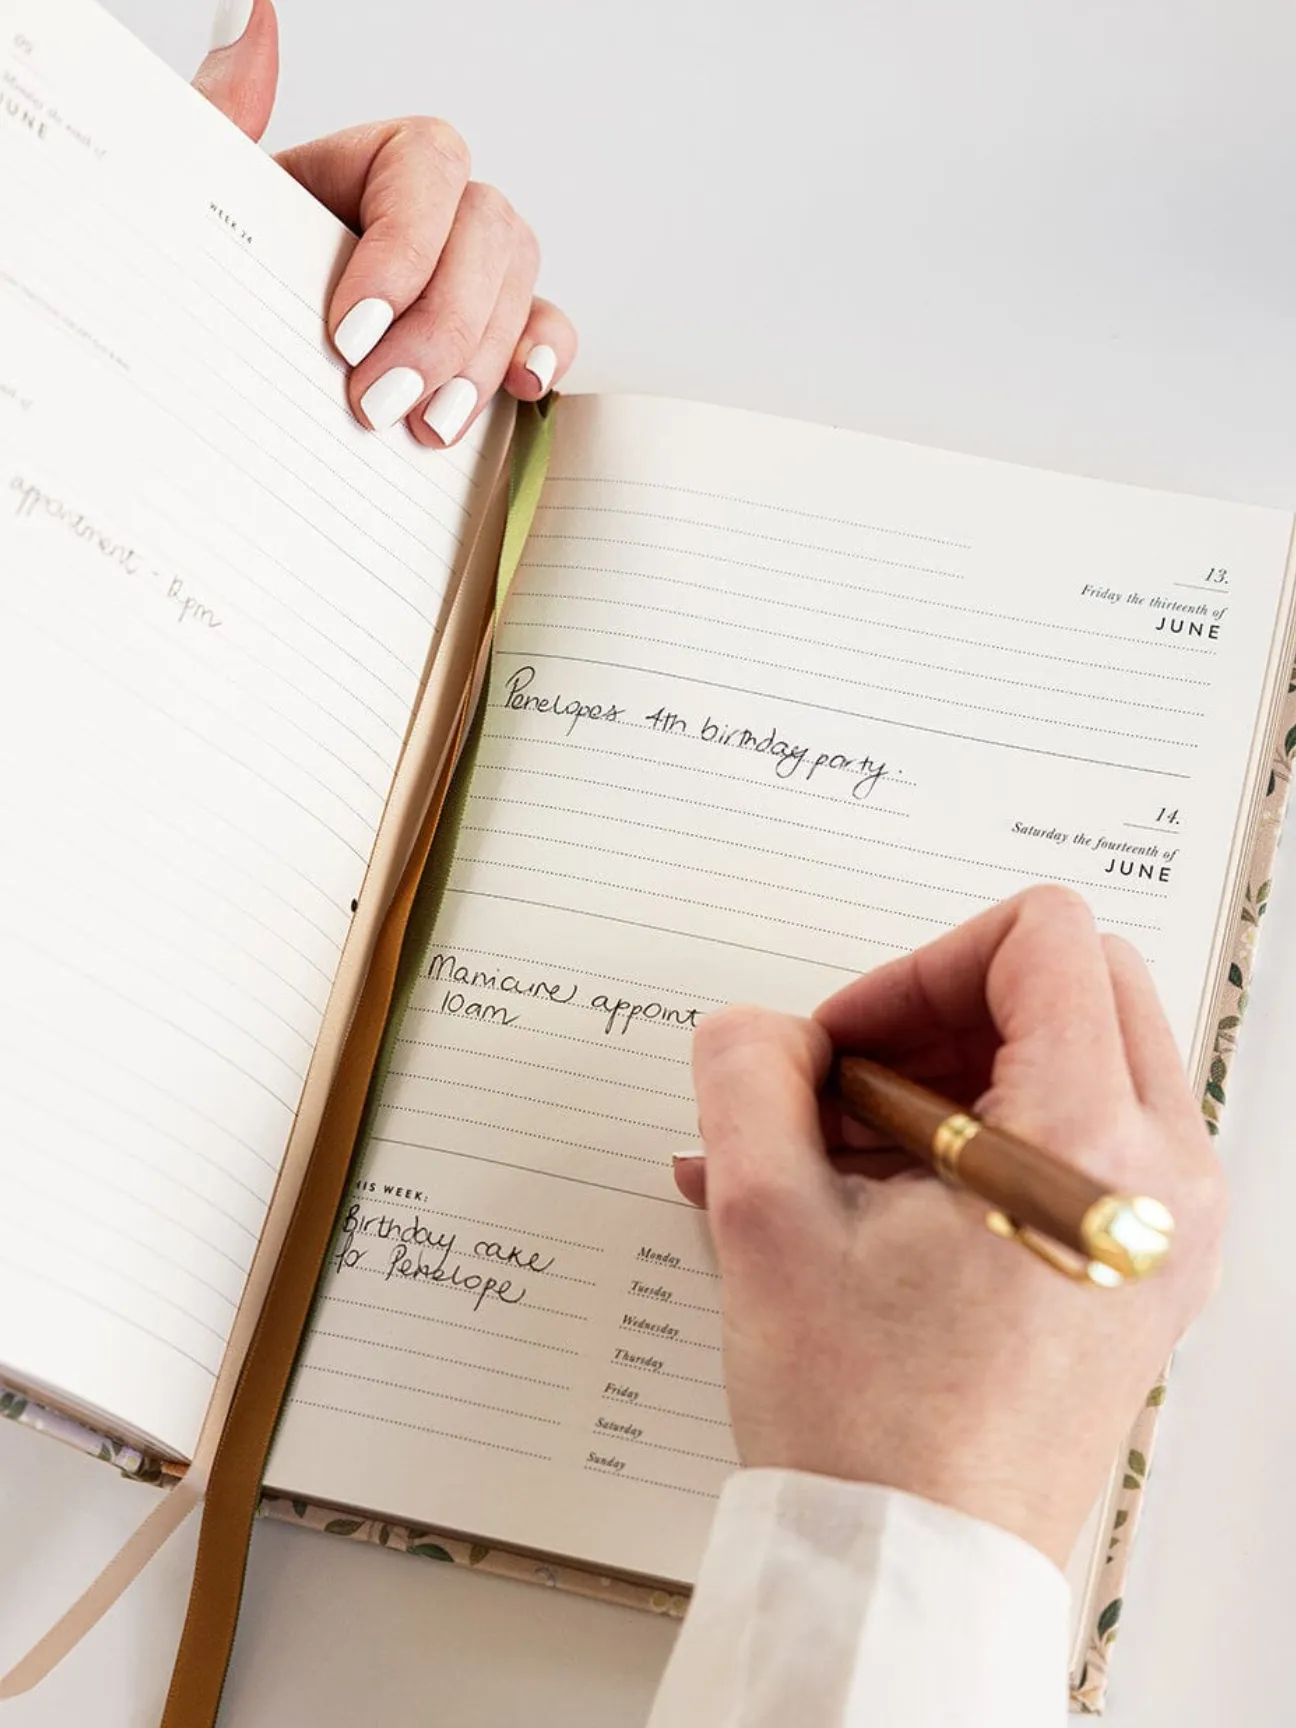 09
Monday the ninth of
JUNE
WEEK 24
appointment - 12pm
13.
Friday the thirteenth of
JUNE
Penelopes 4th birthday party.
14.
Saturday the fourteenth of
JUNE
Manicure appoint
10am
HIS WEEK:
Birthday cake
for Penelope
Monday
Tuesday
Wednesday
Thursday
Friday
Saturday
Sunday